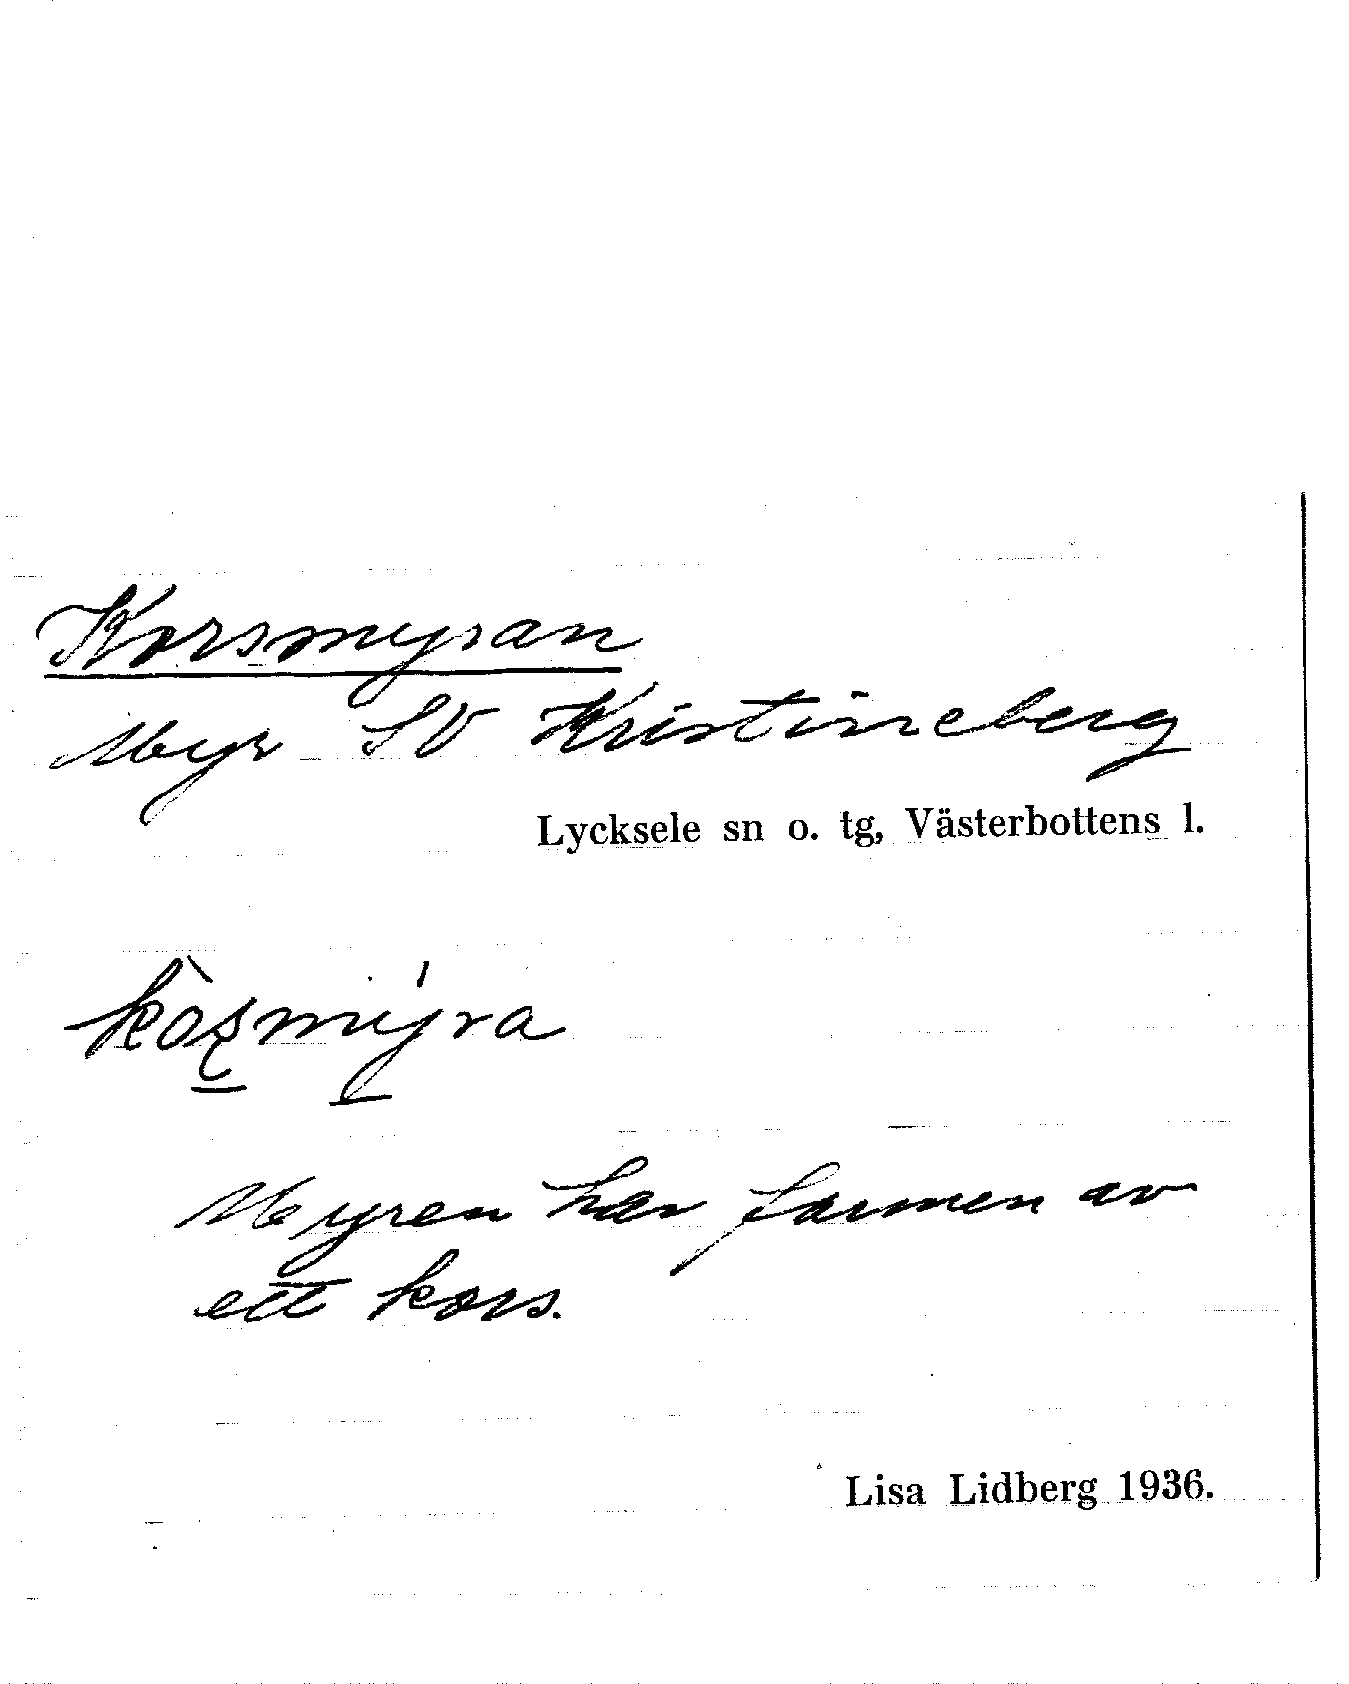 Korsmyran
Myr SV Kristineberg
Lycksele sn o. tg, Västerbottens l.
kòʂmýra
Myren har formen av
ett kors.
Lisa Lidberg 1936.